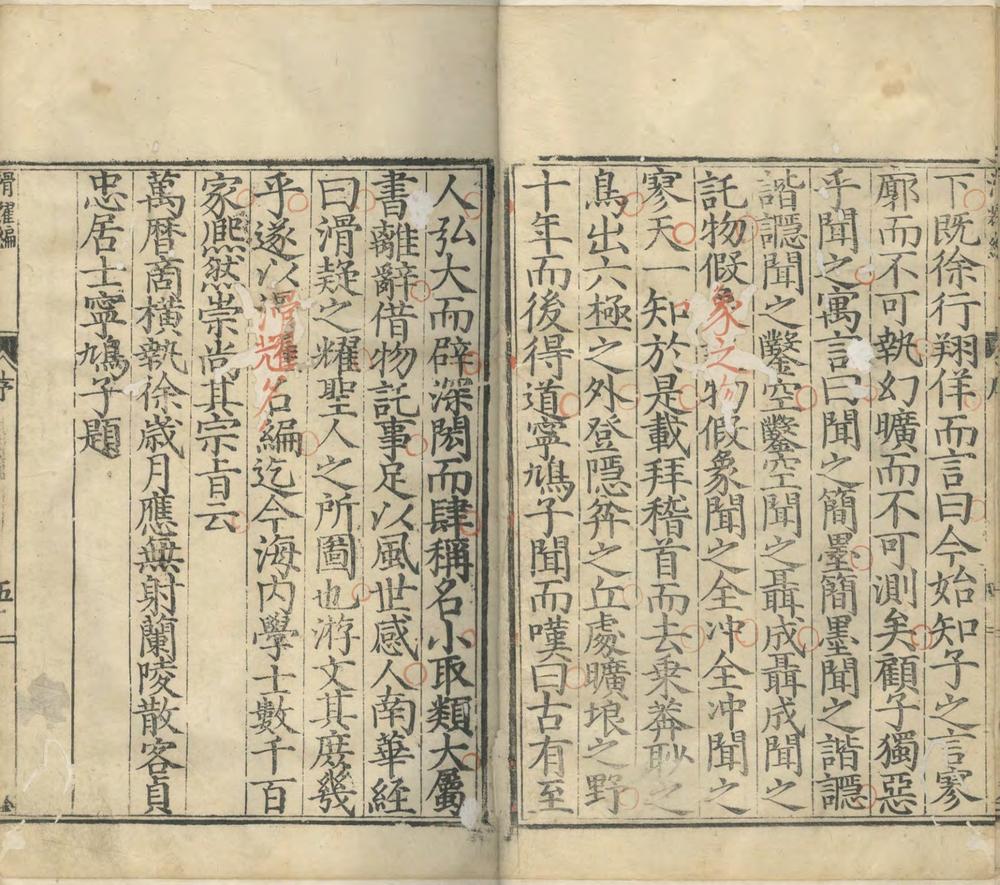 下既徐行翔佯而言曰今始知子之言寥
廓而不可執幻曠而不可測矣顧子獨惡
乎聞之寓言曰聞之簡墨簡墨聞之諧讔
諧讔聞之鑿空鑿空聞之聶成聶成聞之
託物假象之物假象聞之全冲全冲聞之
寥天一知於是載拜稽首而去乘莽眇之
鳥出六極之外登隱弅之丘處曠埌之野
十年而後得道寧鳩子聞而嘆曰古有至
人弘大而辟深閎而肆稱名小取類大屬
書離辭借物託事足以風世感人南華經
曰滑疑之耀聖人之所圖也游文其庶幾
乎遂以滑耀名編迄今海内學士數千百
家熈然崇尚其宗旨云
萬曆商橫執徐歲月應無射蘭陵散客貞
忠居士寧鳩子題
滑耀編
序
五